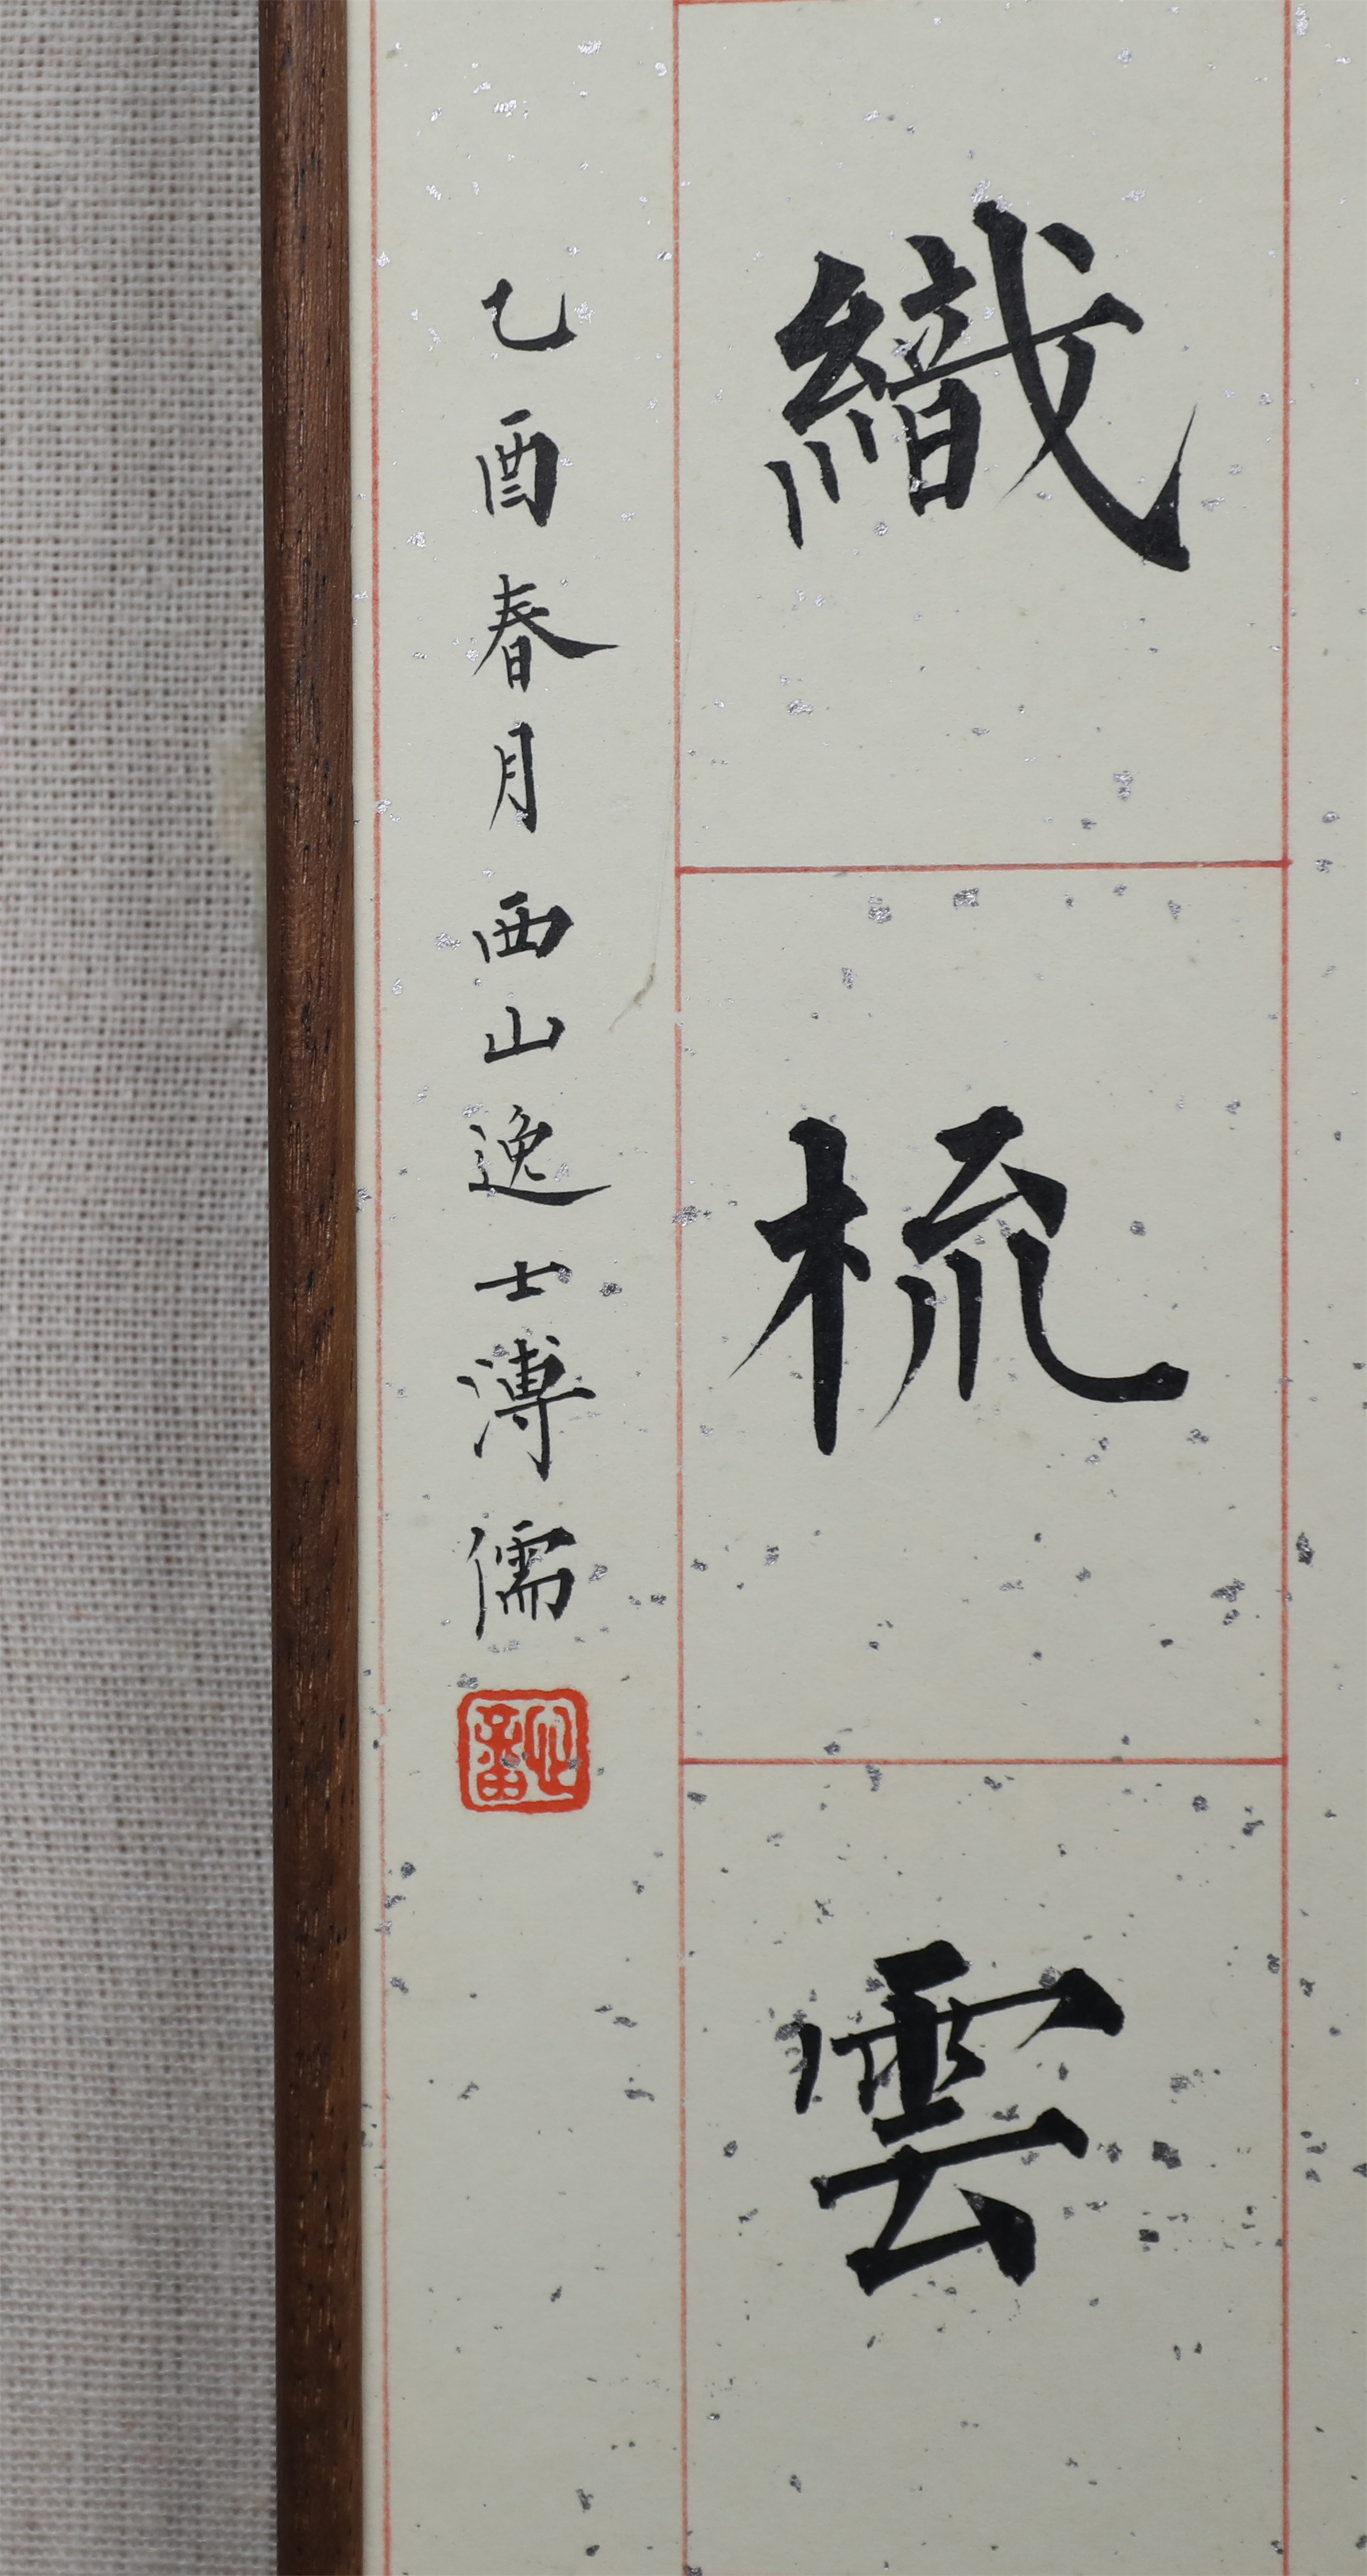 織梳雲
乙酉春月西山逸士溥儒